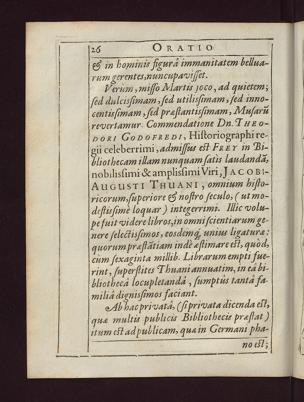 26 ORATIO
& in hominis figurâ immanitatem bellua-
rum gerentes, nuncupavisset.
Verum, misso Martis joco, ad quietem;
sed dulcissimam, sed utilissimam, sed inno-
centissimam, sed præstantissimam, Musarū
revertamur. Commendatione Dn. THEO-
DORI GODOFREDI, Historiographi re-
gii celeberrimi, admissus est FREY in Bi-
bliothecam illam nunquam satis laudandā,
nobilissimi & amplissimi Viri, JACOBI-
AUGUSTI THUANI, omnium histo-
ricorum, superiore & nostro seculo, (ut mo-
destissimè loquar) integerrimi. Illic volu-
pe fuit videre libros, in omni scientiarum ge-
nere selectissimos, eosdemq́, unius ligaturæ:
quorum præstātiam indè æstimare est, quòd,
cum sexaginta millib. Librarum empti fue-
rint, superstites Thuani annuatim, in eâ bi-
bliothecâ locupletandâ, sumptūs tantâ fa-
miliâ dignissimos faciant.
Ab hac privatâ, (si privata dicenda est,
quæ multis publicis Bibliothecis præstat)
itum est ad publicam, qua in Germani pha-
no est;